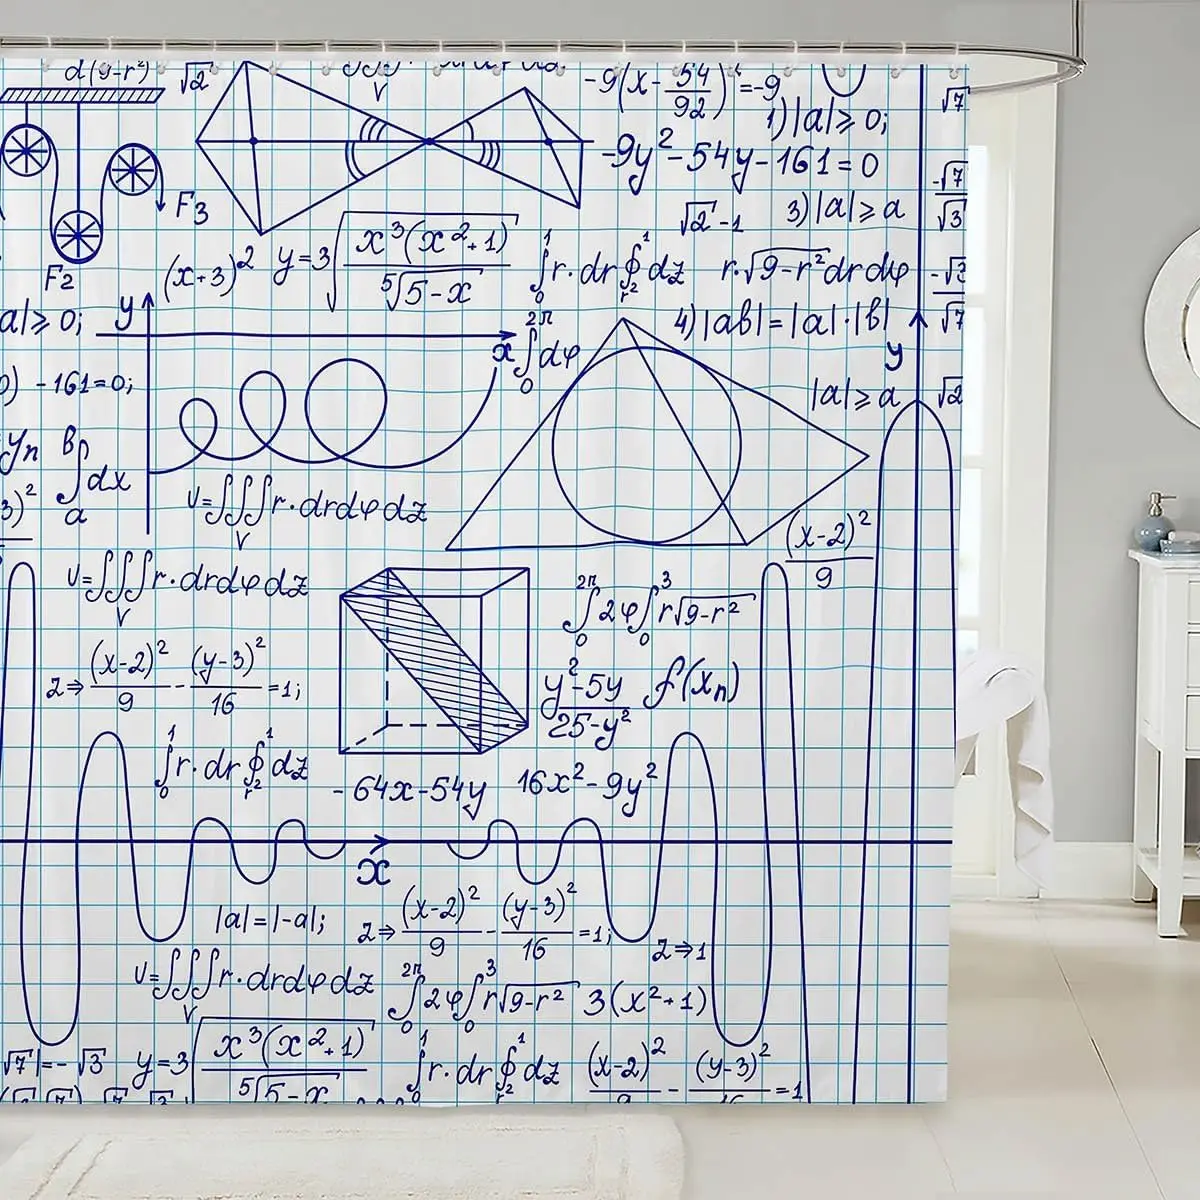 d(9-r²)
√2
-9(x-54/92)²=-9
1)|a|⩾0;
√7
-9y²-54y-161=0
-√7/√3
F3
√2-1
3)|a|⩾a
F2
(x+3)²
y=3√(x³(x²+1)/⁵√(5-x))
∫₀¹r·dr∮dz
r·√(9-r²)drdφ
a|⩾0;
y
x
∫₀²ᴨdφ
4)|ab|=|a|·|b|
y
-161=0;
|a|⩾a
√2
yn
∫dx
a
V=∫∫∫r·drdφdz
V
(x-2)²/9
V=∫∫∫r·drdφdz
V
∫₀²ᴨ2φ∫₀³r√(9-r²)
2⇒(x-2)²/9-(y-3)²/16=1;
(y²-5y)/(25-y²)
f(xn)
∫₀¹r·dr∮dz
-64x-54y
16x²-9y²
x
|a|=|-a|;
2⇒(x-2)²/9-(y-3)²/16=1;
2⇒1
V=∫∫∫r·drdφdz
V
∫₀²ᴨ2φ∫₀³r√(9-r²)
3(x²+1)
√7|=-√3
y=3√(x³(x²+1)/⁵√(5-x))
∫₀¹r·dr∮dz
(x-2)²/9-(y-3)²/16=1